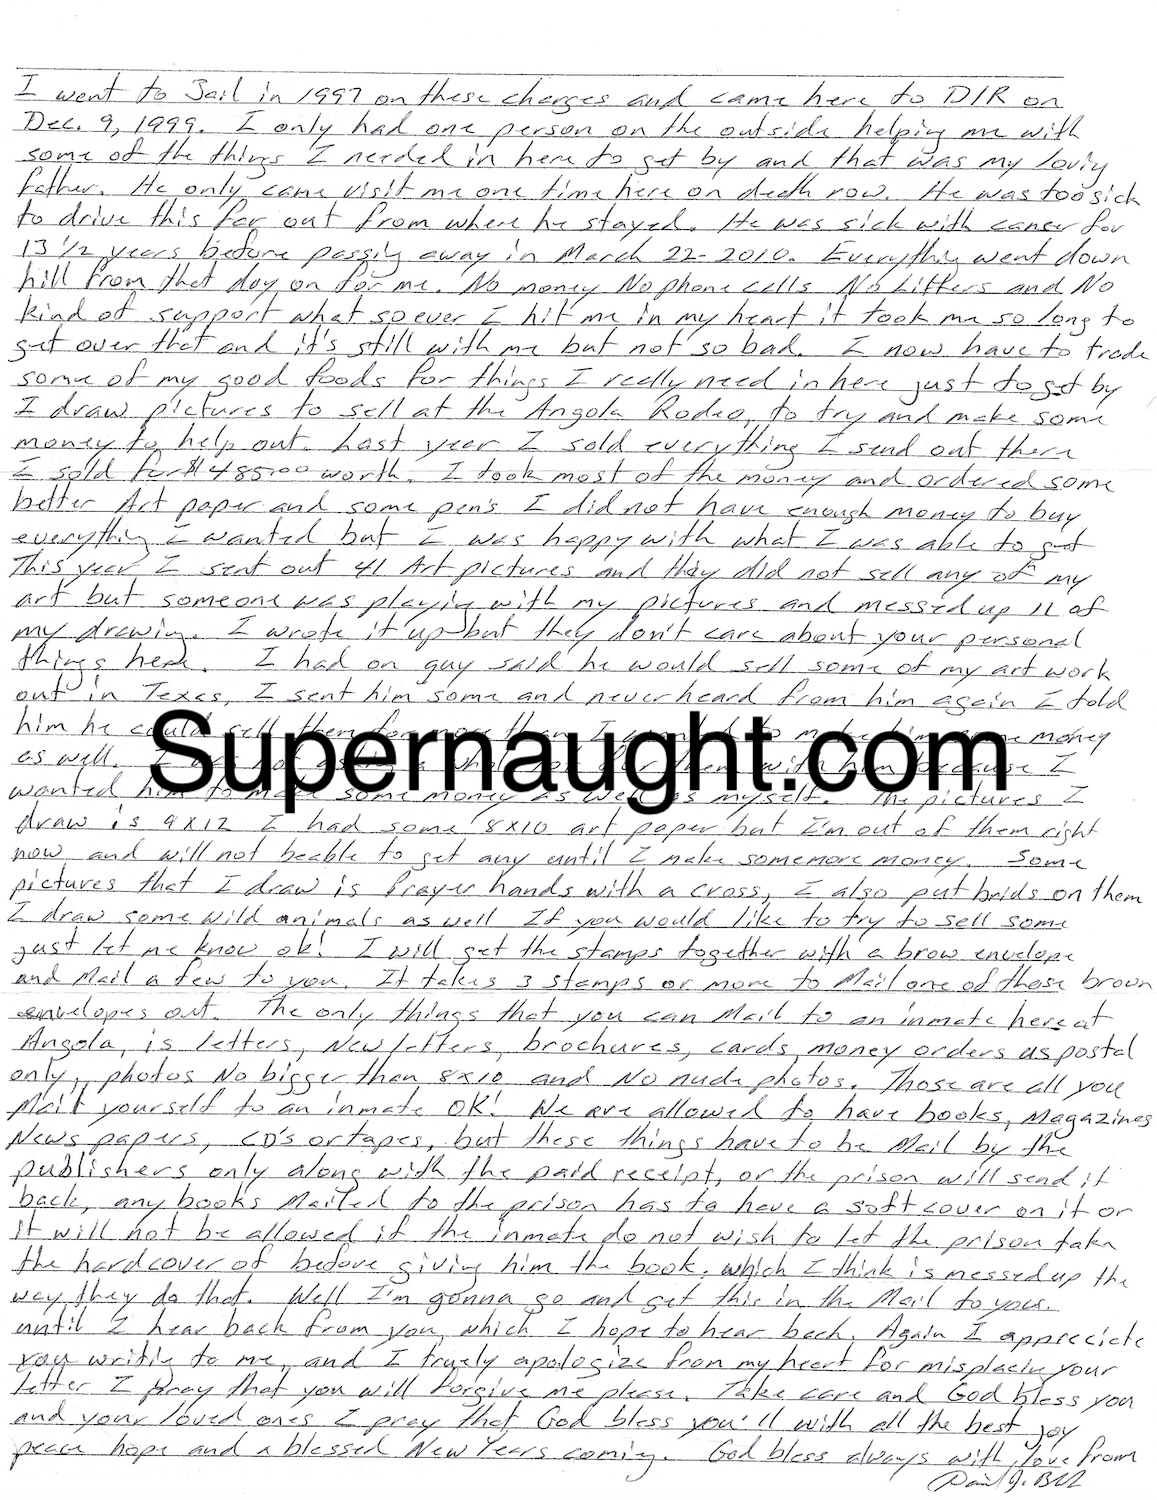 I went to Jail in 1997 on these charges and came here to D/R on
Dec. 9, 1999. I only had one person on the outside helping me with
some of the things I needed in here to get by and that was my loving
father. He only came visit me one time here on death row. He was too sick
to drive this far out from where he stayed. He was sick with cancer for
13 1/2 years before passing away in March 22-2010. Everything went down
hill from that day on for me. No money No phone calls No Letters and No
kind of support what so ever I hit me in my heart it took me so long to
get over that and it's still with me but not so bad. I now have to trade
some of my good foods for things I really need in here just to get by
I draw pictures to sell at the Angola Rodeo, to try and make some
money to help out. Last year I sold everything I send out there
I sold for $485.00 worth. I took most of the money and ordered some
better Art paper and some pen's I did not have enough money to buy
everything I wanted but I was happy with what I was able to get
This year I sent out 41 Art pictures and they did not sell any of my
art but someone was playing with my pictures and messed up 11 of
my drawing. I wrote it up but they don't care about your personal
things here. I had on guy said he would sell some of my art work
out in Texas, I sent him some and never heard from him again I told
him he could sell them for more than I money
as well. I with him because I
wanted him to make some money as well as myself. The pictures I
Supernaught.com
draw is 9x12 I had some 8x10 art paper but I'm out of them right
now and will not beable to get any until I make somemore money. Some
pictures that I draw is Prayer hands with a cross, I also put brids on them
I draw some wild animals as well If you would like to try to sell some
just let me know ok! I will get the stamps together with a brow envelope
and Mail a few to you. It takes 3 stamps or more to Mail one of those brown
envelopes out. The only things that you can Mail to an inmate here at
Angola, is letters, New letters, brochures, cards, money orders us postal
only, photos No bigger than 8x10 and No nude photos. Those are all you
Mail yourself to an inmate OK! We are allowed to have books, Magazines
News papers, CD's or tapes, but these things have to be Mail by the
publishers only along with the paid receipt, or the prison will send it
back, any books Mailed to the prison has to have a soft cover on it or
it will not be allowed if the inmate do not wish to let the prison take
the hardcover of before giving him the book, which I think is messed up the
way they do that. Well I'm gonna go and get this in the Mail to you.
until I hear back from you, which I hope to hear back. Again I appreciate
you writing to me, and I truely apologize from my heart for misplacing your
letter I pray that you will forgive me please. Take care and God bless you
and your loved ones I pray that God bless you'll with all the best joy
peace hope and a blessed New Years coming. God bless always with love from